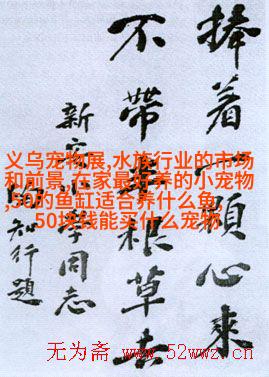 捧着顆心來
不帶根草去
新學同志
知行題
义乌宠物展,水族行业的市场
和前景,在家最好养的小宠物
,50的鱼缸适合养什么鱼,
50块钱能买什么宠物
无为斋 www.52wwz.cn